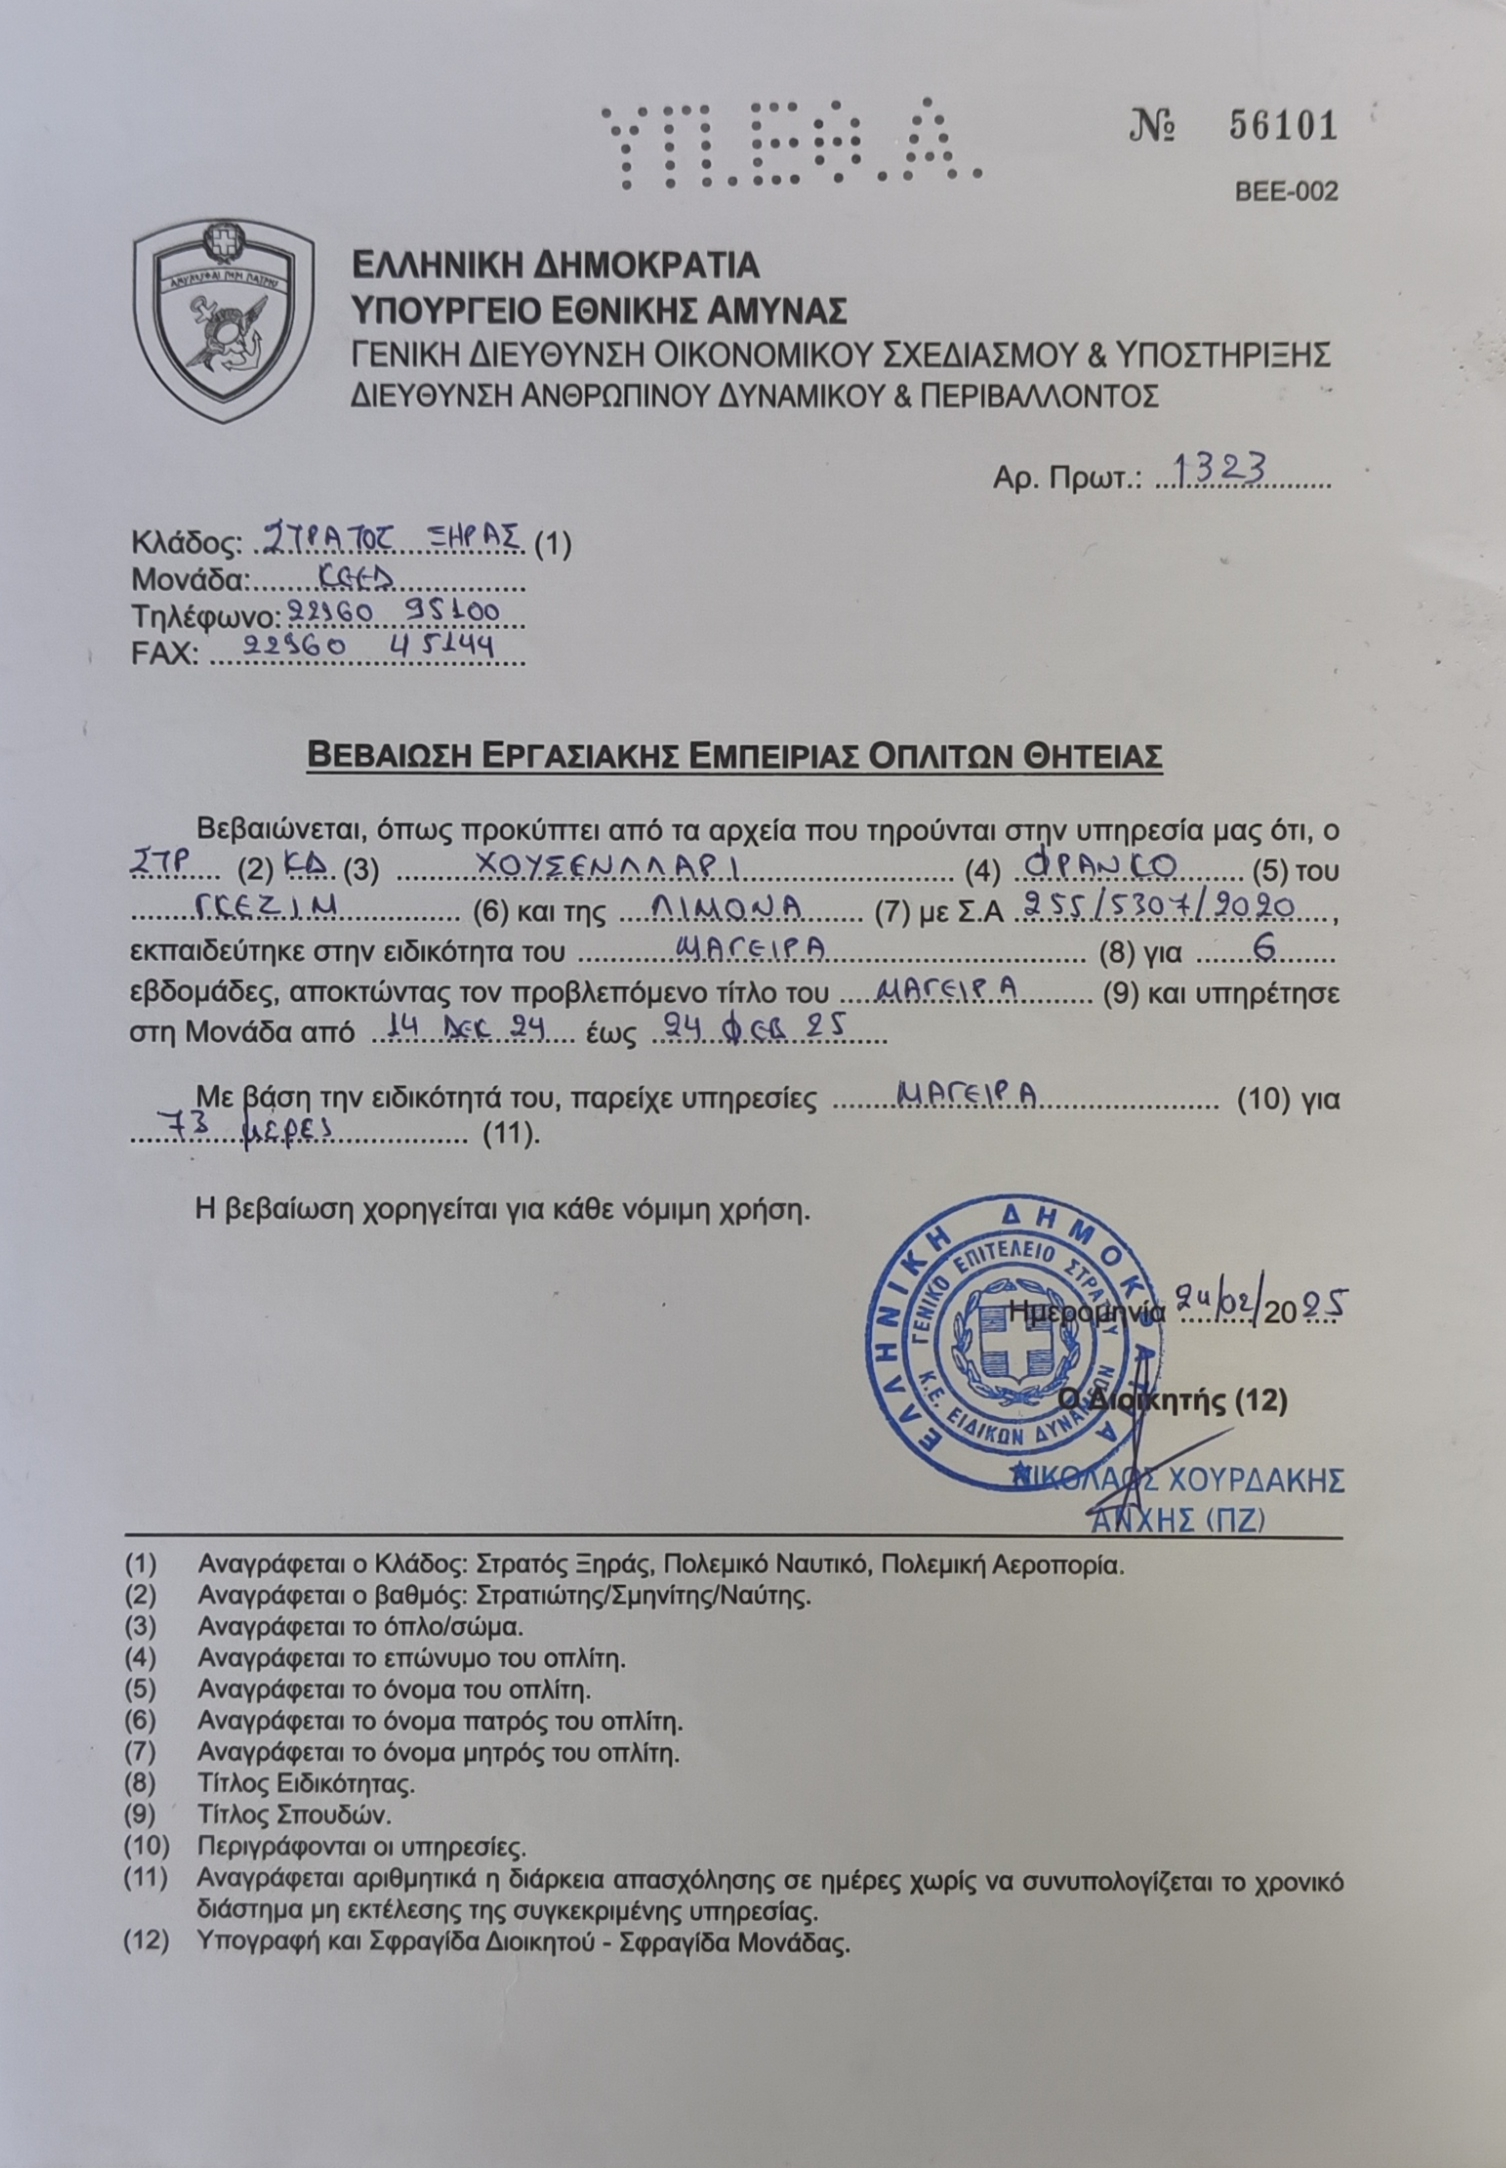 ΥΠ.ΕΘ.Α.
№ 56101
ΒΕΕ-002
ΑΜΥΝΕΣΘΑΙ ΠΕΡΙ ΠΑΤΡΗΣ
ΕΛΛΗΝΙΚΗ ΔΗΜΟΚΡΑΤΙΑ
ΥΠΟΥΡΓΕΙΟ ΕΘΝΙΚΗΣ ΑΜΥΝΑΣ
ΓΕΝΙΚΗ ΔΙΕΥΘΥΝΣΗ ΟΙΚΟΝΟΜΙΚΟΥ ΣΧΕΔΙΑΣΜΟΥ & ΥΠΟΣΤΗΡΙΞΗΣ
ΔΙΕΥΘΥΝΣΗ ΑΝΘΡΩΠΙΝΟΥ ΔΥΝΑΜΙΚΟΥ & ΠΕΡΙΒΑΛΛΟΝΤΟΣ
Αρ. Πρωτ.: 1323
Κλάδος: ΣΤΡΑΤΟΣ ΞΗΡΑΣ (1)
Μονάδα: ΚΕΕΔ
Τηλέφωνο: 22960 95100
FAX: 22960 45144
ΒΕΒΑΙΩΣΗ ΕΡΓΑΣΙΑΚΗΣ ΕΜΠΕΙΡΙΑΣ ΟΠΛΙΤΩΝ ΘΗΤΕΙΑΣ
Βεβαιώνεται, όπως προκύπτει από τα αρχεία που τηρούνται στην υπηρεσία μας ότι, ο
ΣΤΡ (2) ΚΔ (3) ΧΟΥΣΕΝΛΛΑΡΙ (4) ΦΡΑΝΚΟ (5) του
ΓΚΕΖΙΜ (6) και της ΛΙΜΟΝΑ (7) με Σ.Α 255/5307/2020,
εκπαιδεύτηκε στην ειδικότητα του ΜΑΓΕΙΡΑ (8) για 6
εβδομάδες, αποκτώντας τον προβλεπόμενο τίτλο του ΜΑΓΕΙΡΑ (9) και υπηρέτησε
στη Μονάδα από 14 ΔΕΚ 24 έως 24 ΦΕΒ 25
Με βάση την ειδικότητά του, παρείχε υπηρεσίες ΜΑΓΕΙΡΑ (10) για
73 μέρες (11).
Η βεβαίωση χορηγείται για κάθε νόμιμη χρήση.
ΕΛΛΗΝΙΚΗ ΔΗΜΟΚΡΑΤΙΑ
ΓΕΝΙΚΟ ΕΠΙΤΕΛΕΙΟ ΣΤΡΑΤΟΥ
Κ.Ε. ΕΙΔΙΚΩΝ ΔΥΝΑΜΕΩΝ
Ημερομηνία 24/02/2025
Ο Διοικητής (12)
ΝΙΚΟΛΑΟΣ ΧΟΥΡΔΑΚΗΣ
ΑΝΧΗΣ (ΠΖ)
(1) Αναγράφεται ο Κλάδος: Στρατός Ξηράς, Πολεμικό Ναυτικό, Πολεμική Αεροπορία.
(2) Αναγράφεται ο βαθμός: Στρατιώτης/Σμηνίτης/Ναύτης.
(3) Αναγράφεται το όπλο/σώμα.
(4) Αναγράφεται το επώνυμο του οπλίτη.
(5) Αναγράφεται το όνομα του οπλίτη.
(6) Αναγράφεται το όνομα πατρός του οπλίτη.
(7) Αναγράφεται το όνομα μητρός του οπλίτη.
(8) Τίτλος Ειδικότητας.
(9) Τίτλος Σπουδών.
(10) Περιγράφονται οι υπηρεσίες.
(11) Αναγράφεται αριθμητικά η διάρκεια απασχόλησης σε ημέρες χωρίς να συνυπολογίζεται το χρονικό
διάστημα μη εκτέλεσης της συγκεκριμένης υπηρεσίας.
(12) Υπογραφή και Σφραγίδα Διοικητού - Σφραγίδα Μονάδας.